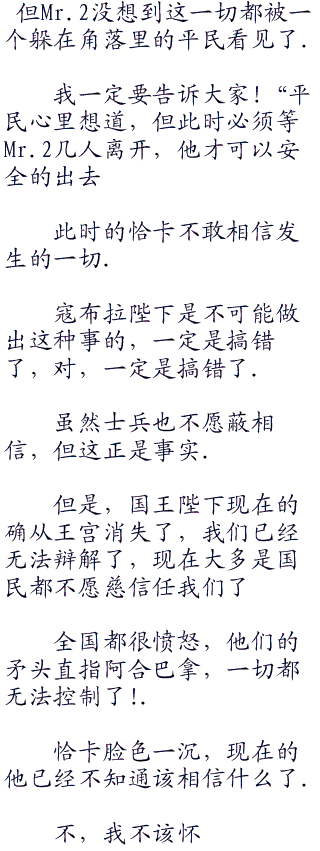 但Mr.2没想到这一切都被一
个躲在角落里的平民看见了.
我一定要告诉大家!“平
民心里想道，但此时必须等
Mr.2几人离开，他才可以安
全的出去
此时的恰卡不敢相信发
生的一切.
寇布拉陛下是不可能做
出这种事的，一定是搞错
了，对，一定是搞错了.
虽然士兵也不愿蔽相
信，但这正是事实.
但是，国王陛下现在的
确从王宫消失了，我们已经
无法辩解了，现在大多是国
民都不愿慈信任我们了
全国都很愤怒，他们的
矛头直指阿合巴拿，一切都
无法控制了!.
恰卡脸色一沉，现在的
他已经不知通该相信什么了.
不，我不该怀